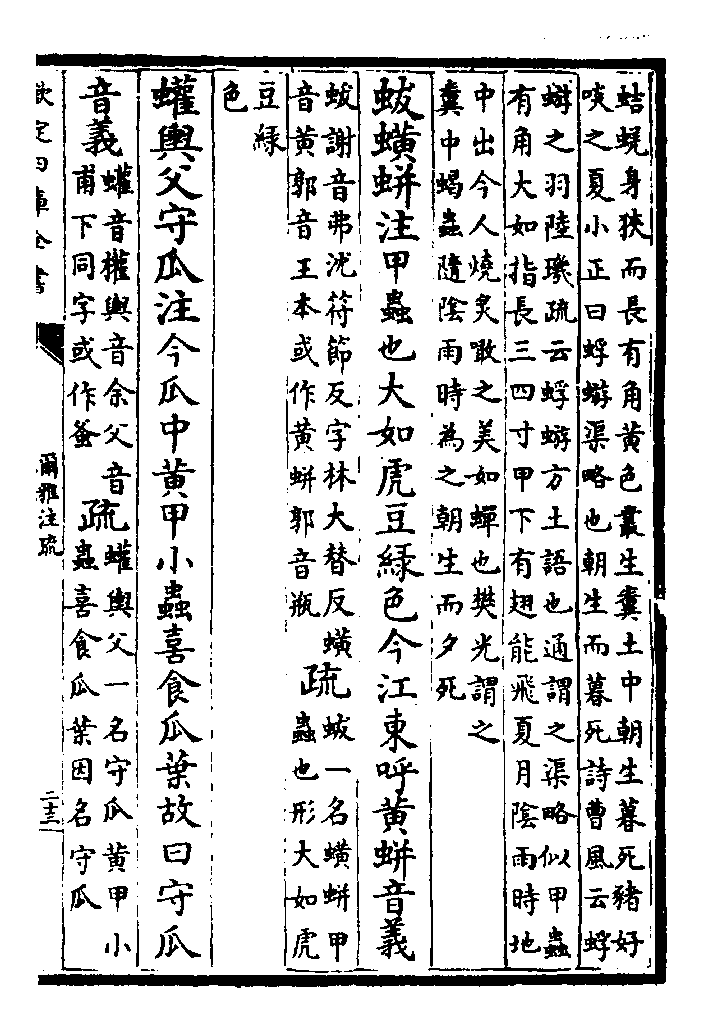 蛣蜣身狹而長有角黃色叢生糞土中朝生暮死豬好
啖之夏小正曰蜉蝣渠略也朝生而暮死詩曹風云蜉
蝣之羽陸璣疏云蜉蝣方土語也通謂之渠略似甲蟲
有角大如指長三四寸甲下有翅能飛夏月陰雨時地
中出今人燒炙噉之美如蟬也樊光謂之
糞中蝎蟲隨陰雨時為之朝生而夕死
蛂蟥蛢注甲蟲也大如虎豆綠色今江東呼黃蛢音義
蛂謝音弗沈符節反字林大替反蟥
音黃郭音王本或作黃蛢郭音瓶
疏
蛂一名蟥蛢甲
蟲也形大如虎
豆綠
色
蠸輿父守瓜注今瓜中黃甲小蟲喜食瓜葉故曰守瓜
音義
蠸音權輿音余父音
甫下同字或作蚥
疏
蠸輿父一名守瓜黃甲小
蟲喜食瓜葉因名守瓜
欽定四庫全書
爾雅注疏
二十三